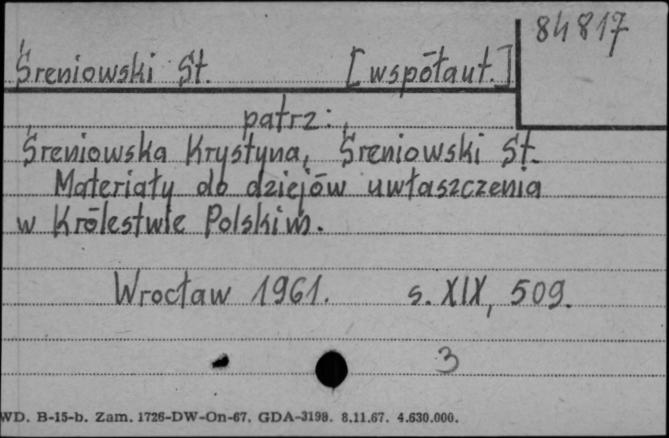 84817
Śreniowski St. [współaut.]
patrz:
Śreniowska Krystyna, Śreniowski St.
Materiały do dziejów uwłaszczenia
w Królestwie Polskim.
Wrocław 1961. s. XIX, 509.
3
WD. B-15-b. Zam. 1726-DW-On-67. GDA-3198. 8.11.67. 4.630.000.